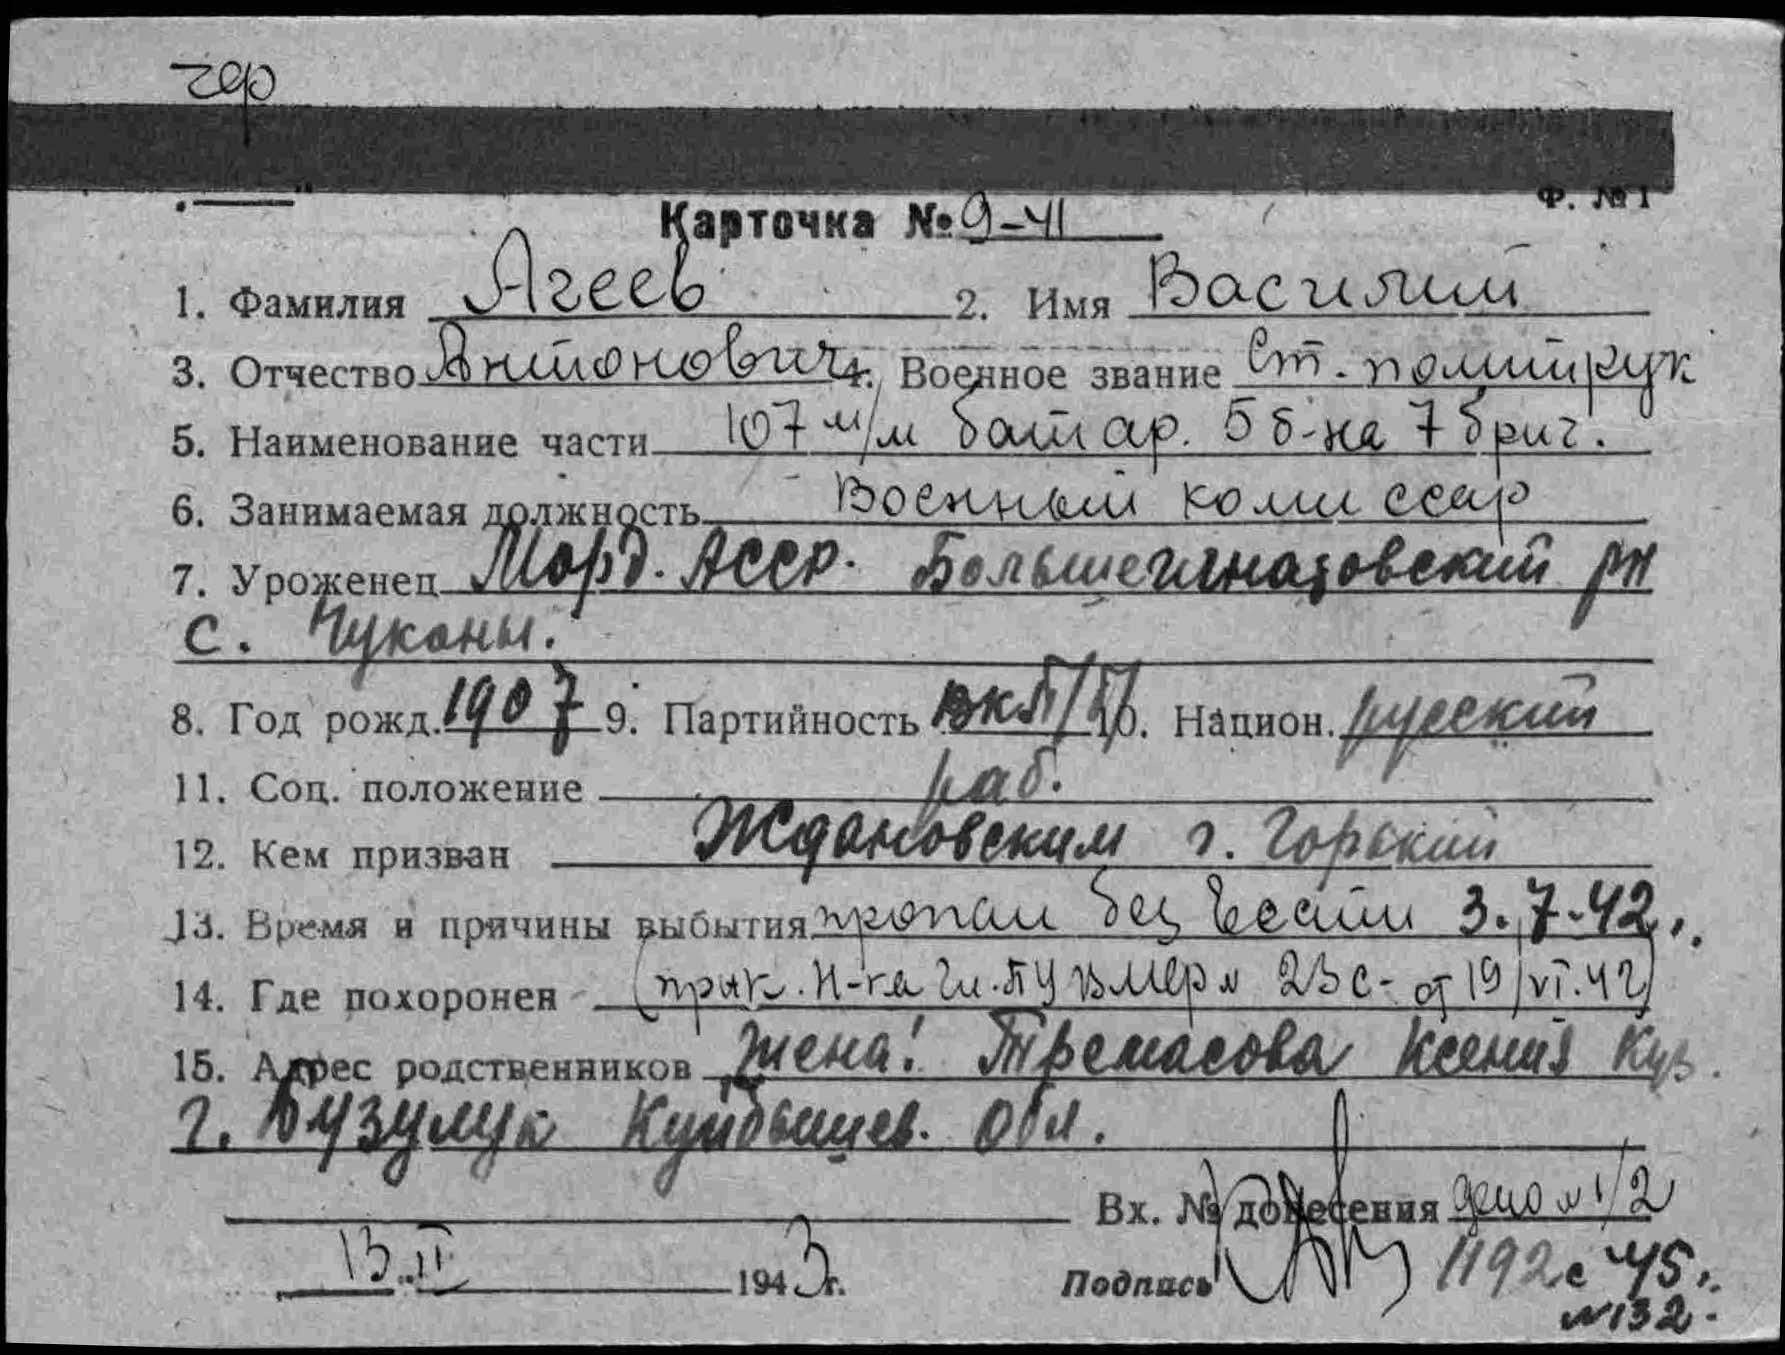 чер
Ф. № 1
Карточка № 9-41
1. Фамилия Агеев 2. Имя Василий
3. Отчество Антонович 4. Военное звание Ст. политрук
5. Наименование части 107 м/м батар. 5 б-на 7 бриг.
6. Занимаемая должность Военный комиссар
7. Уроженец Морд. АССР. Большеигнатовский рн
с. Чуканы.
8. Год рожд. 1907 9. Партийность ВКП/б/ 10. Национ. русский
11. Соц. положение раб.
12. Кем призван Ждановским г. Горький
13. Время и причины выбытия пропал без вести 3.7-42.
14. Где похоронен (прик. Н-ка Гл. ПУ ВМФ от 19/VI.42)
15. Адрес родственников жена: Тремасова Ксения Куз.
г. Бузулук Куйбышев. обл.
Вх. № донесения дело № 1/2
13.II 1943 г. Подпись 1192с 45.
№ 132.